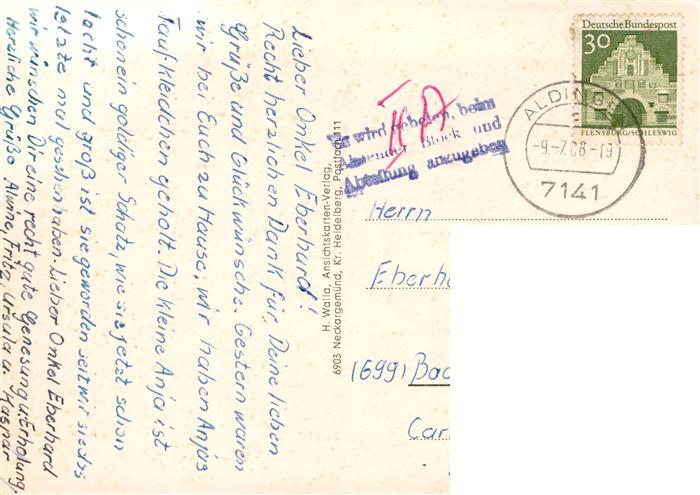 Lieber Onkel Eberhard!
Recht herzlichen Dank für Deine lieben
Grüße und Glückwünsche. Gestern waren
wir bei Euch zu Hause, wir haben Anjas
Taufkleidchen geholt. Die kleine Anja ist
schon ein goldiger Schatz, wie sie jetzt schon
lacht und groß ist sie geworden seit wir sie das
letzte mal gesehen haben. Lieber Onkel Eberhard
wir wünschen Dir eine recht gute Genesung u. Erholung
Herzliche Grüße Alwine, Fritz, Ursula u. Kaspar
H. Walla, Ansichtskarten-Verlag
6903 Neckargemünd, Kr. Heidelberg, Postfach 111
Deutsche Bundespost
30
FLENSBURG/SCHLESWIG
ALDINGEN
-9.-7.68-19
7141
II A
Es wird gebeten, beim
Absender Block und
Abteilung anzugeben
Herrn
Eberha
(699) Bad
Car